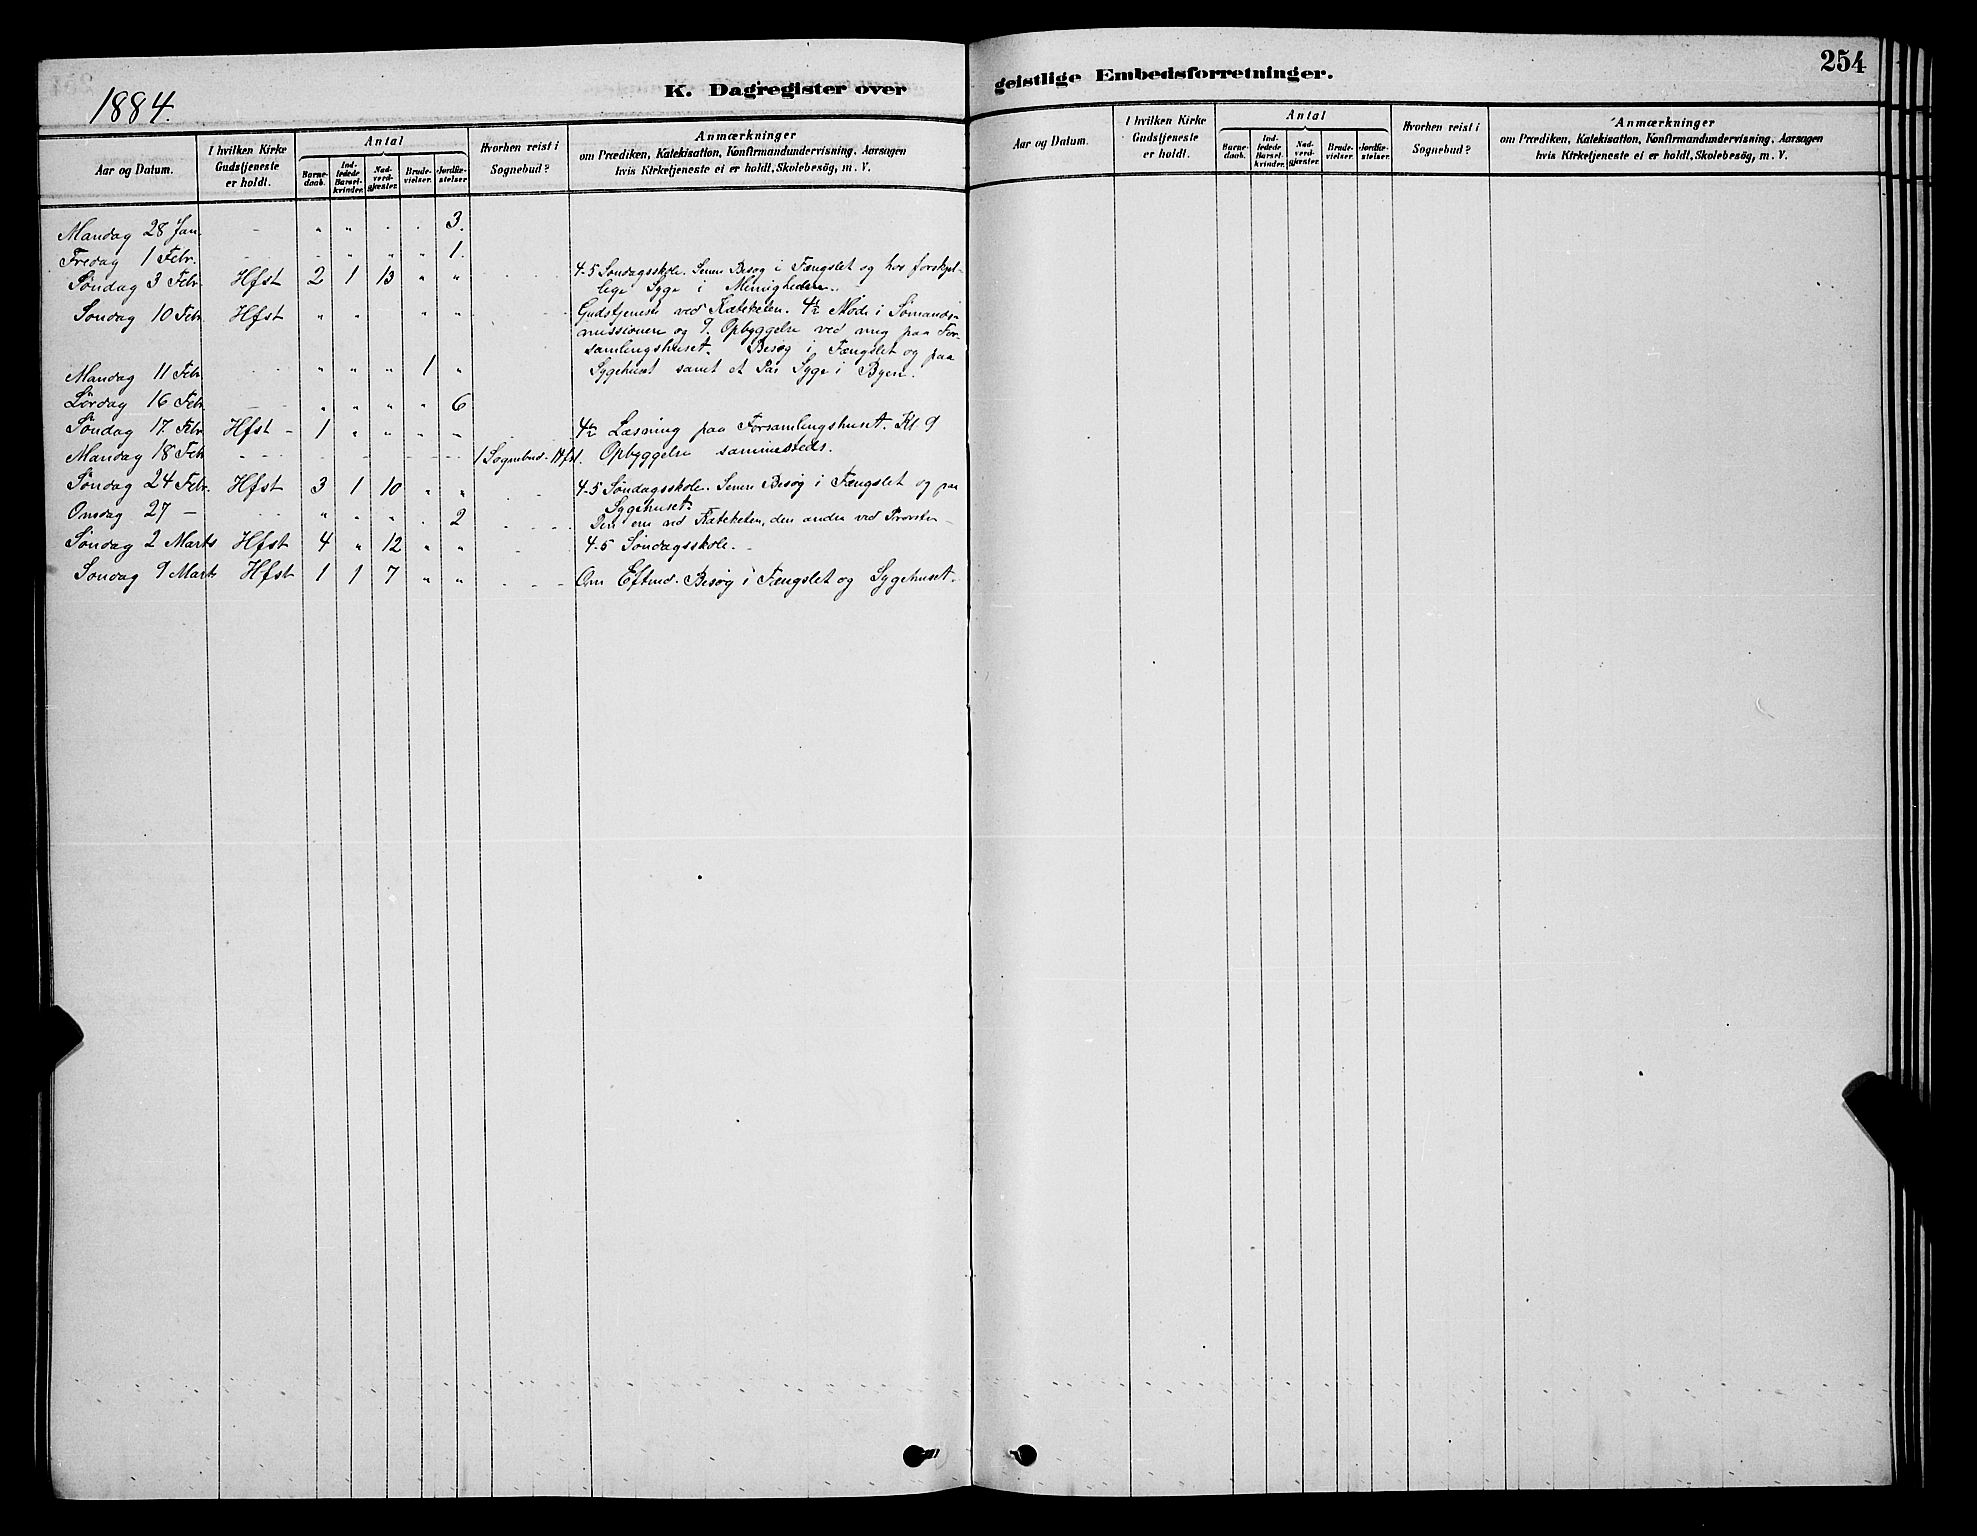 1884.
K. Dagregister over
geistlige Embedsforretninger.
254
Aar og Datum.
I hvilken Kirke Gudstjeneste er holdt.
Antal
Barnedaab.
Indledede Barselkvinder.
Nadverdgjester.
Brudevielser.
Jordfæstelser
Hvorhen reist i Sognebud?
Anmærkninger
om Prædiken, Katekisation, Konfirmandundervisning, Aarsagen
hvis Kirketjeneste ei er holdt, Skolebesög, m. V.
Aar og Datum.
I hvilken Kirke Gudstjeneste er holdt.
Antal
Barnedaab.
Indledede Barselkvinder.
Nadverdgjester.
Brudevielser.
Jordfæstelser.
Hvorhen reist i Sognebud?
Anmærkninger
om Prædiken, Katekisation, Konfirmandundervisning, Aarsagen
hvis Kirketjeneste ei er holdt, Skolebesög, m. V.
Mandag 28 Jan. - " " . . 3.
Fredag 1 Febr. . . " " " 1.
Søndag 3 Febr Hfst 2 1 13 " " 4-5 Søndagsskole. Senere Besøg i Fængslet og hos forskjel-
lige Syge i Menigheden.
Søndag 10 Febr. Hfst " " " " Gudstjeneste ved Kateketen. 4½ Møde i Sømands-
missionen og 9. Opbyggelse ved mig paa For-
samlingshuset. Besøg i Fængslet og paa
Mandag 11 Febr. " " " 1 " Sygehuset samt et Par Syge i Byen.
Lørdag 16 Febr. " " " " 6
Søndag 17. Febr Hfst - 1 " " " " 4½ Læsning paa Forsamlingshuset. Kl 9
Mandag 18 Feb - - - 1 Sognebud - Hfst. Opbyggelse sammesteds.
Søndag 24 Febr. Hfst 3 1 10 " " 4-5 Søndagsskole. Senere Besøg i Fængslet og paa
Sygehuset.
Onsdag 27 - " " " . 2 Den ene ved Kateketen, den anden ved Provsten -
Søndag 2 Marts Hfst 4 " 12 " " 4-5 Søndagsskole.
Søndag 9 Marts Hfst 1 1 7 " " Om Eftmd. Besøg i Fængslet og Sygehuset.